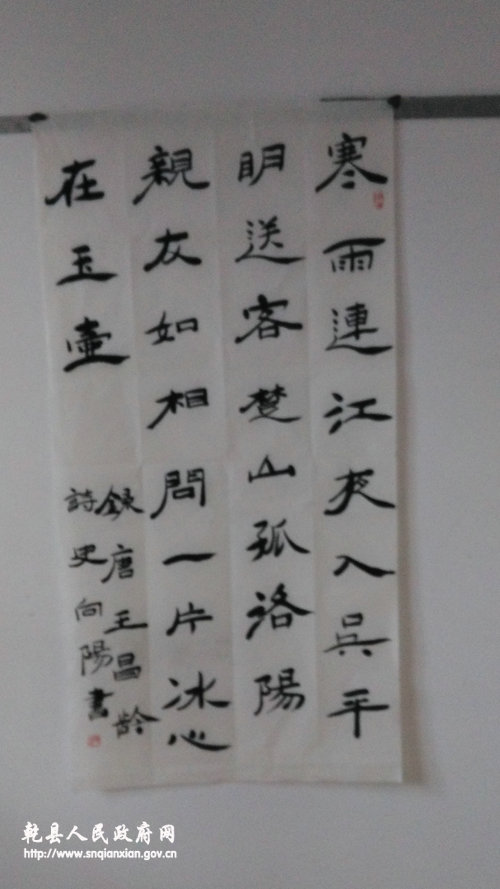 寒雨連江夜入吳平
明送客楚山孤洛陽
親友如相問一片冰心
在玉壺
録唐王昌齡
詩史向陽書
乾县人民政府网
http://www.snqianxian.gov.cn